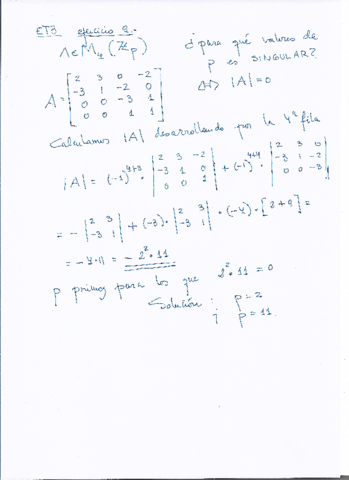 ET3 ejercicio 2.-
A ∈ M₄ (ℤp)
¿para qué valores de
p es SINGULAR?
⇔ |A| = 0
A = [ 2 3 0 -2
-3 1 -2 0
0 0 -3 1
0 0 1 1 ]
Calculamos |A| desarrollando por la 4ª fila
|A| = (-1)⁴⁺³ · | 2 3 -2 ; -3 1 0 ; 0 0 1 | + (-1)⁴⁺⁴ · | 2 3 0 ; -3 1 -2 ; 0 0 -3 |
= - | 2 3 ; -3 1 | + (-3) · | 2 3 ; -3 1 | · (-4) · [2+9] =
= -4·11 = - 2² · 11
p primos para los que 2² · 11 = 0
Solución: p = 2
; p = 11.